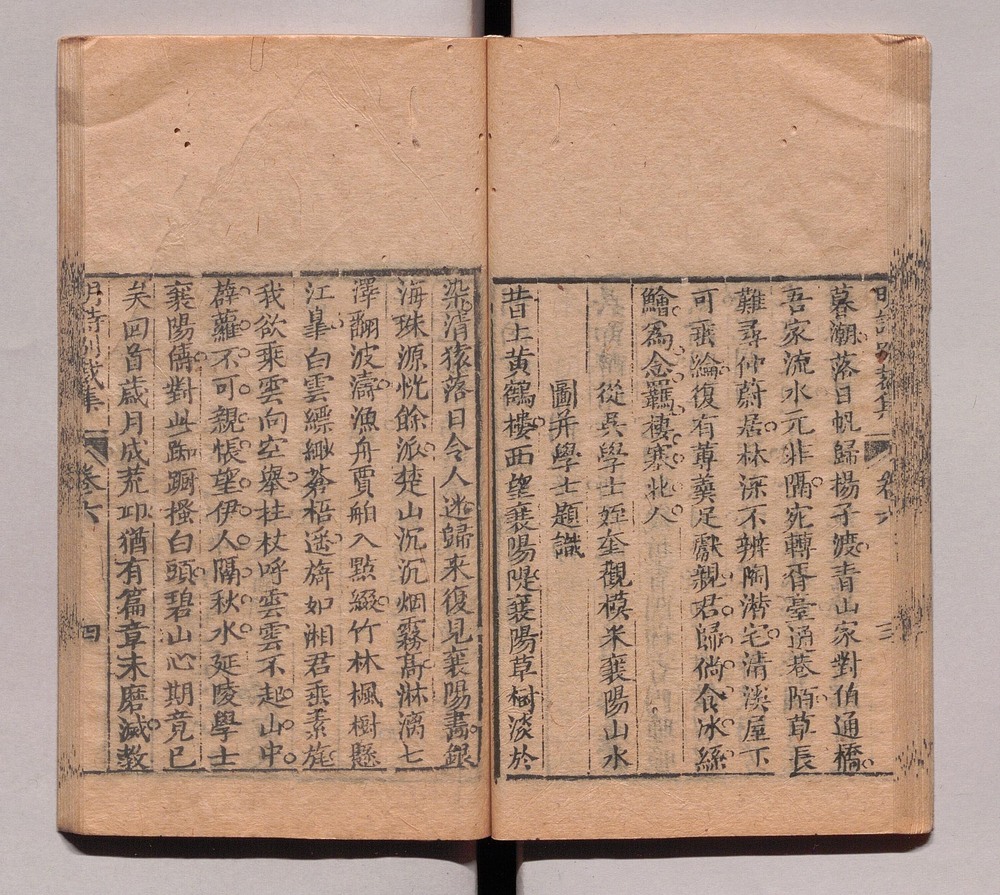 暮潮落日帆歸楊子渡青山家對伯通橋
吾家流水元非隔宛轉胥臺通巷陌草長
難尋仲蔚居林深不辨陶潛宅清淡屋下
可垂綸復有蓴羹足獻親君歸倘食冰絲
鱠為念羈棲寒北人
從吳學士姪奎觀模米襄陽山水
圖并學士題識
昔上黃鶴樓西望襄陽隄襄陽草樹淡於
染清猿落日令人迷歸来復見襄陽畵銀
海珠源恍餘派楚山沉沉烟霧髙淋漓七
澤翻波濤漁舟賈舶入點綴竹林楓樹懸
江臯白雲縹緲蒼梧逺旖如湘君垂素旄
我欲乘雲向空舉柱杖呼雲雲不起山中
薜蘿不可親悵望伊人隔秋水延陵學士
襄陽儔對此踟蹰搔白頭碧山心期竟已
矣回首歲月成荒丘猶有篇章未磨滅敎
明詩別裁集
卷六
四